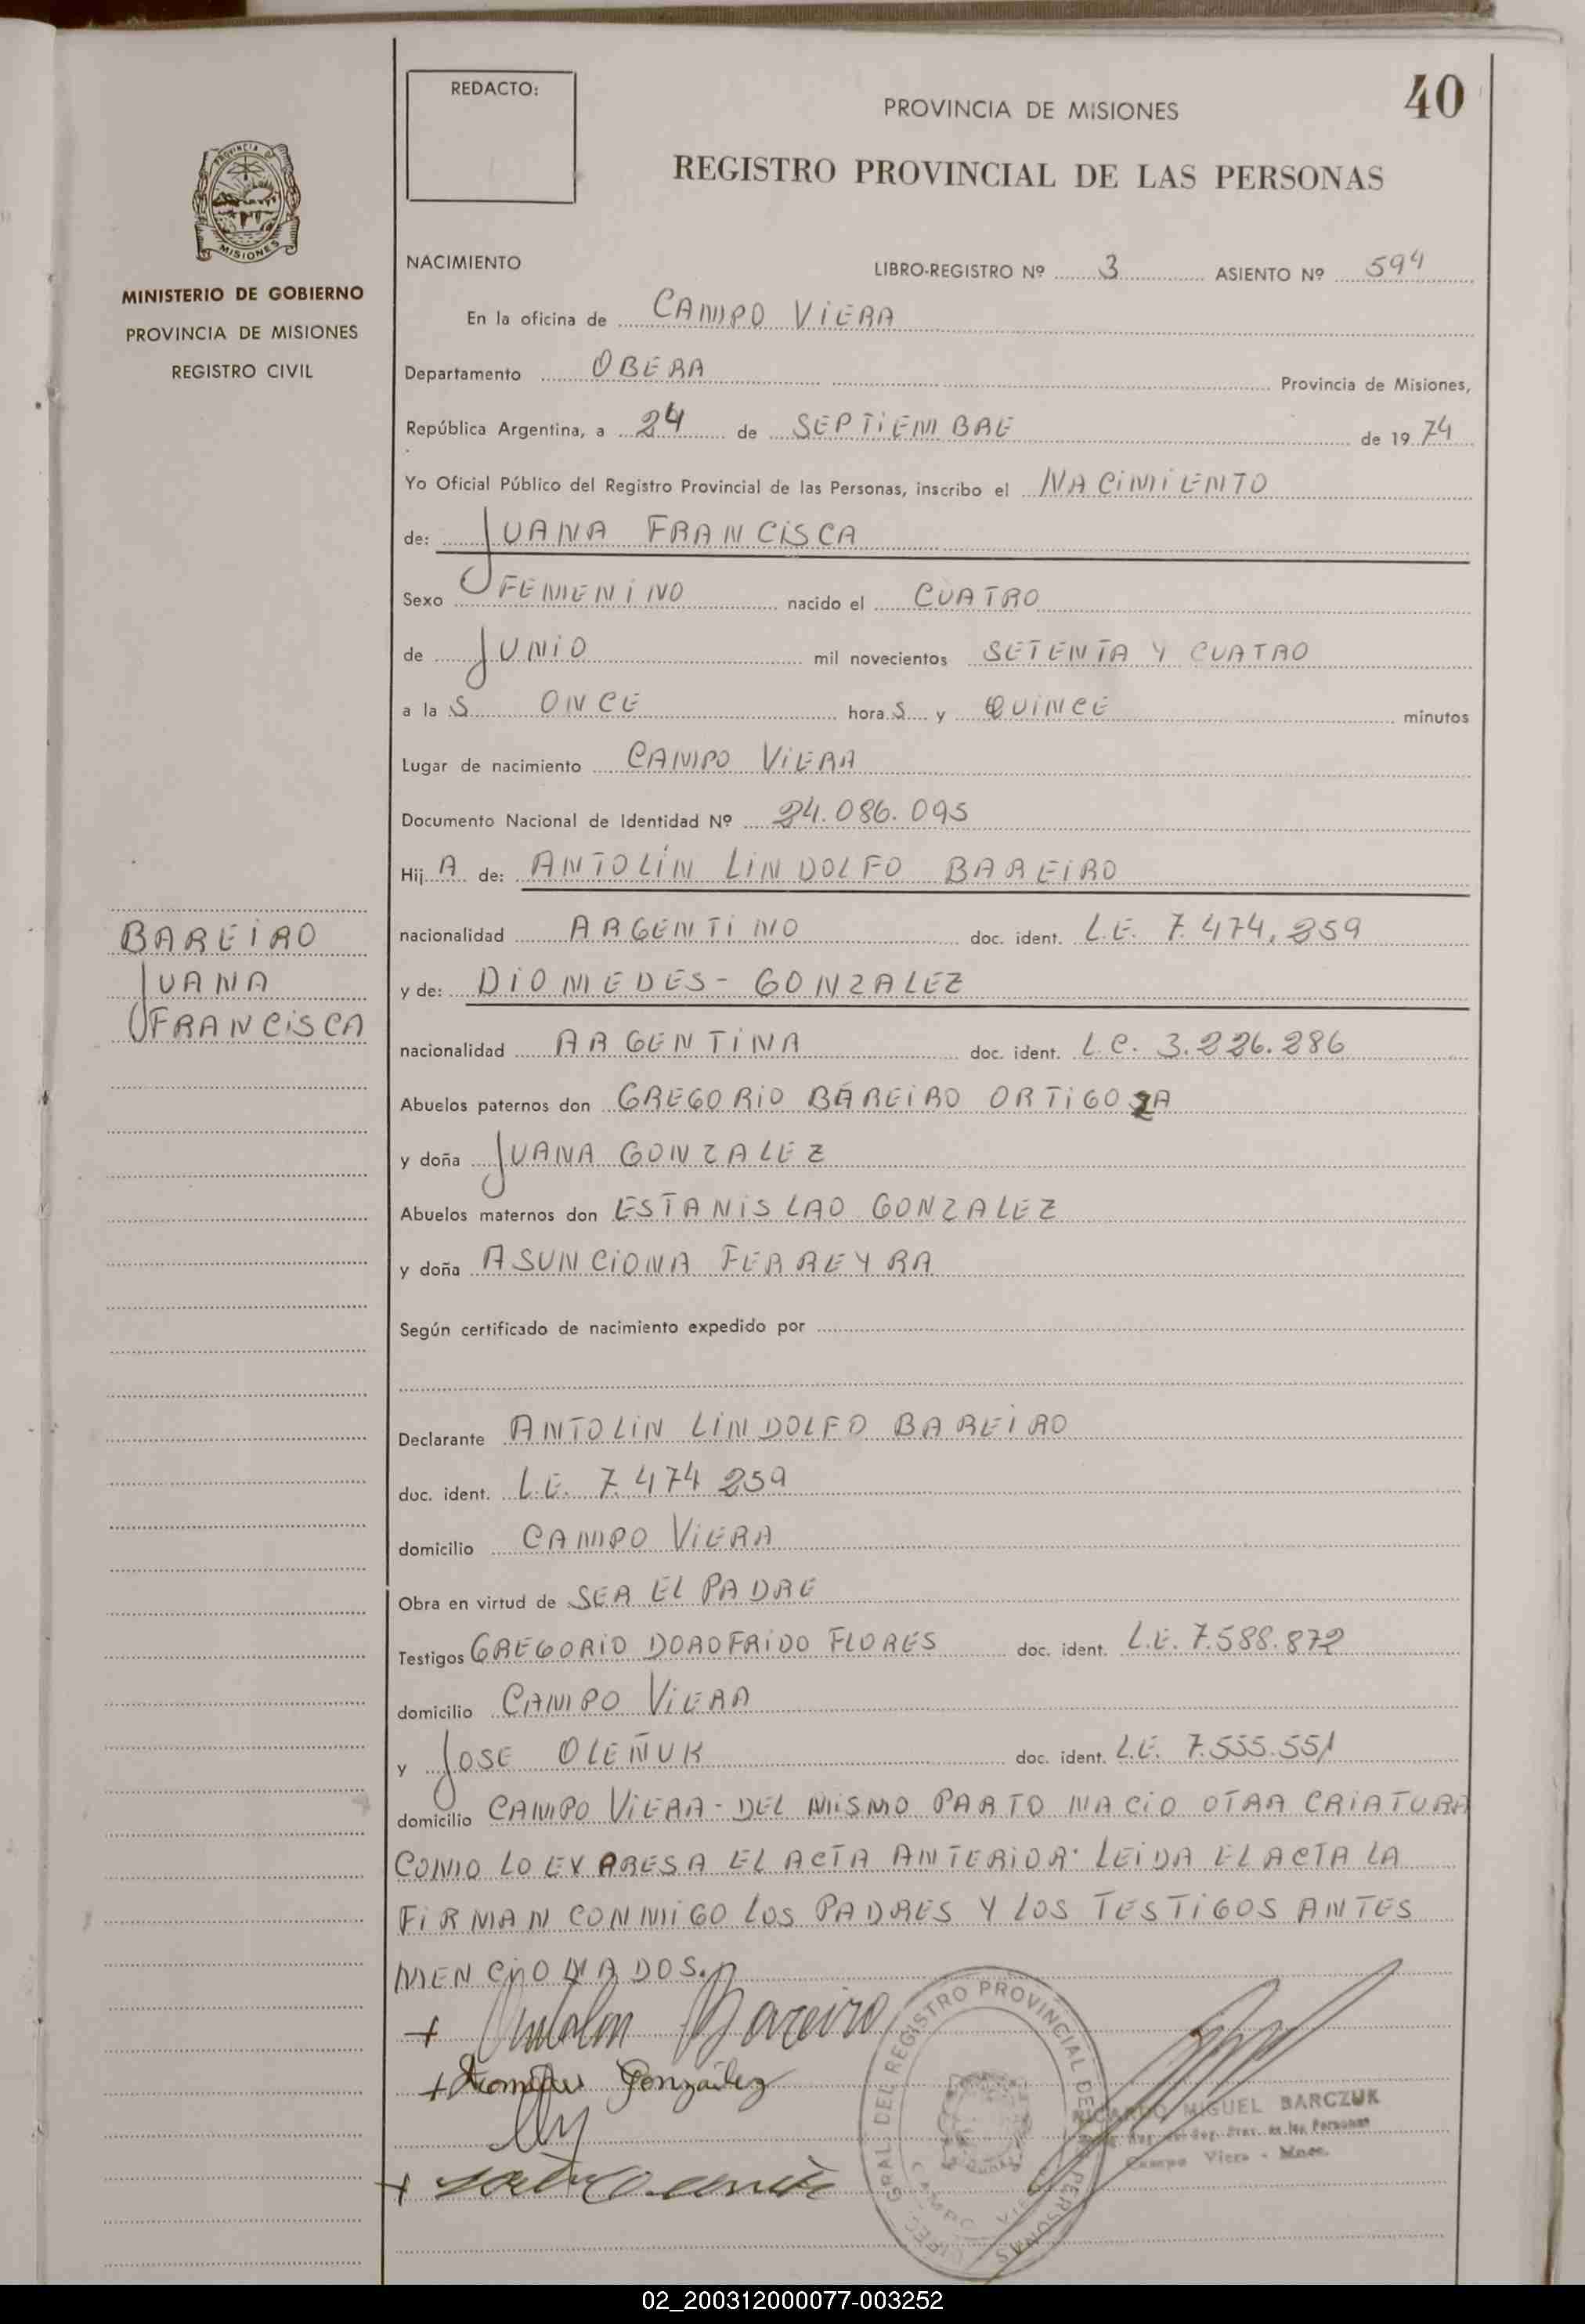 40
REDACTO:
PROVINCIA DE MISIONES
REGISTRO PROVINCIAL DE LAS PERSONAS
PROVINCIA DE
MISIONES
MINISTERIO DE GOBIERNO
PROVINCIA DE MISIONES
REGISTRO CIVIL
NACIMIENTO LIBRO-REGISTRO Nº 3 ASIENTO Nº 594
En la oficina de CAMPO VIERA
Departamento OBERA Provincia de Misiones,
República Argentina, a 24 de SEPTIEMBRE de 19 74
Yo Oficial Público del Registro Provincial de las Personas, inscribo el NACIMIENTO
de: JUANA FRANCISCA
Sexo FEMENINO nacido el CUATRO
de JUNIO mil novecientos SETENTA Y CUATRO
a la S ONCE hora S y QUINCE minutos
Lugar de nacimiento CAMPO VIERA
Documento Nacional de Identidad Nº 24.086.095
Hij A de: ANTOLÍN LINDOLFO BAREIRO
nacionalidad ARGENTINO doc. ident. L.E. 7.474.259
y de: DIOMEDES - GONZALEZ
nacionalidad ARGENTINA doc. ident. L.C. 3.226.286
Abuelos paternos don GREGORIO BAREIRO ORTIGOZA
y doña JUANA GONZALEZ
Abuelos maternos don ESTANISLAO GONZALEZ
y doña ASUNCIONA FERREYRA
Según certificado de nacimiento expedido por
Declarante ANTOLIN LINDOLFO BAREIRO
doc. ident. L.E. 7.474 259
domicilio CAMPO VIERA
Obra en virtud de SER EL PADRE
Testigos GREGORIO DOROFRIDO FLORES doc. ident. L.E. 7.588.872
domicilio CAMPO VIERA
y JOSE OLEÑUK doc. ident. L.E. 7.555.551
domicilio CAMPO VIERA - DEL MISMO PARTO NACIO OTRA CRIATURA
COMO LO EXPRESA EL ACTA ANTERIOR. LEIDA EL ACTA LA
FIRMAN CONMIGO LOS PADRES Y LOS TESTIGOS ANTES
MENCIONADOS.
BAREIRO
JUANA
FRANCISCA
+ Antolin Bareiro
+ Diomedes González
GRAL. DEL REGISTRO PROVINCIAL DE PERSONAS
RICARDO MIGUEL BARCZUK
Campo Viera - Mnes.
02_200312000077-003252